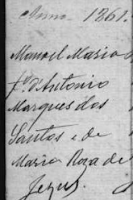 Anno 1861.
Manoel Maria
f.º d'Antonio
Marques dos
Santos e de
Maria Roza de
Jezus.